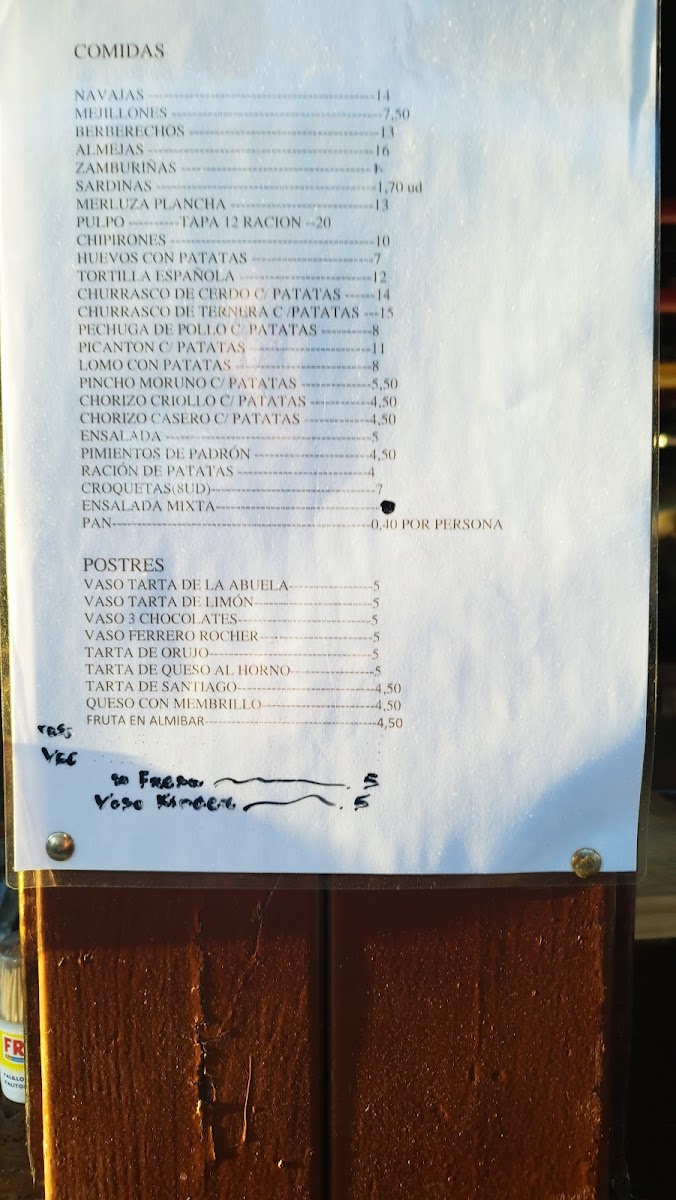 COMIDAS
NAVAJAS ----------------------------------------14
MEJILLONES -------------------------------------7,50
BERBERECHOS ----------------------------------13
ALMEJAS ----------------------------------------16
ZAMBURIÑAS ----------------------------------
SARDINAS ---------------------------------------1,70 ud
MERLUZA PLANCHA -------------------------13
PULPO ---------TAPA 12 RACION --20
CHIPIRONES -----------------------------------10
HUEVOS CON PATATAS ---------------------7
TORTILLA ESPAÑOLA -----------------------12
CHURRASCO DE CERDO C/ PATATAS ------14
CHURRASCO DE TERNERA C /PATATAS ---15
PECHUGA DE POLLO C/ PATATAS ---------8
PICANTON C/ PATATAS ---------------------11
LOMO CON PATATAS ------------------------8
PINCHO MORUNO C/ PATATAS ------------5,50
CHORIZO CRIOLLO C/ PATATAS ----------4,50
CHORIZO CASERO C/ PATATAS -----------4,50
ENSALADA -----------------------------------5
PIMIENTOS DE PADRÓN --------------------4,50
RACIÓN DE PATATAS -----------------------4
CROQUETAS(8UD)---------------------------7
ENSALADA MIXTA---------------------------
PAN--------------------------------------------0,40 POR PERSONA
POSTRES
VASO TARTA DE LA ABUELA--------------5
VASO TARTA DE LIMÓN--------------------5
VASO 3 CHOCOLATES-----------------------5
VASO FERRERO ROCHER-------------------5
TARTA DE ORUJO----------------------------5
TARTA DE QUESO AL HORNO-------------5
TARTA DE SANTIAGO-----------------------4,50
QUESO CON MEMBRILLO-------------------4,50
FRUTA EN ALMIBAR-----------------------------4,50
5
Vaso Kinder 5
FR